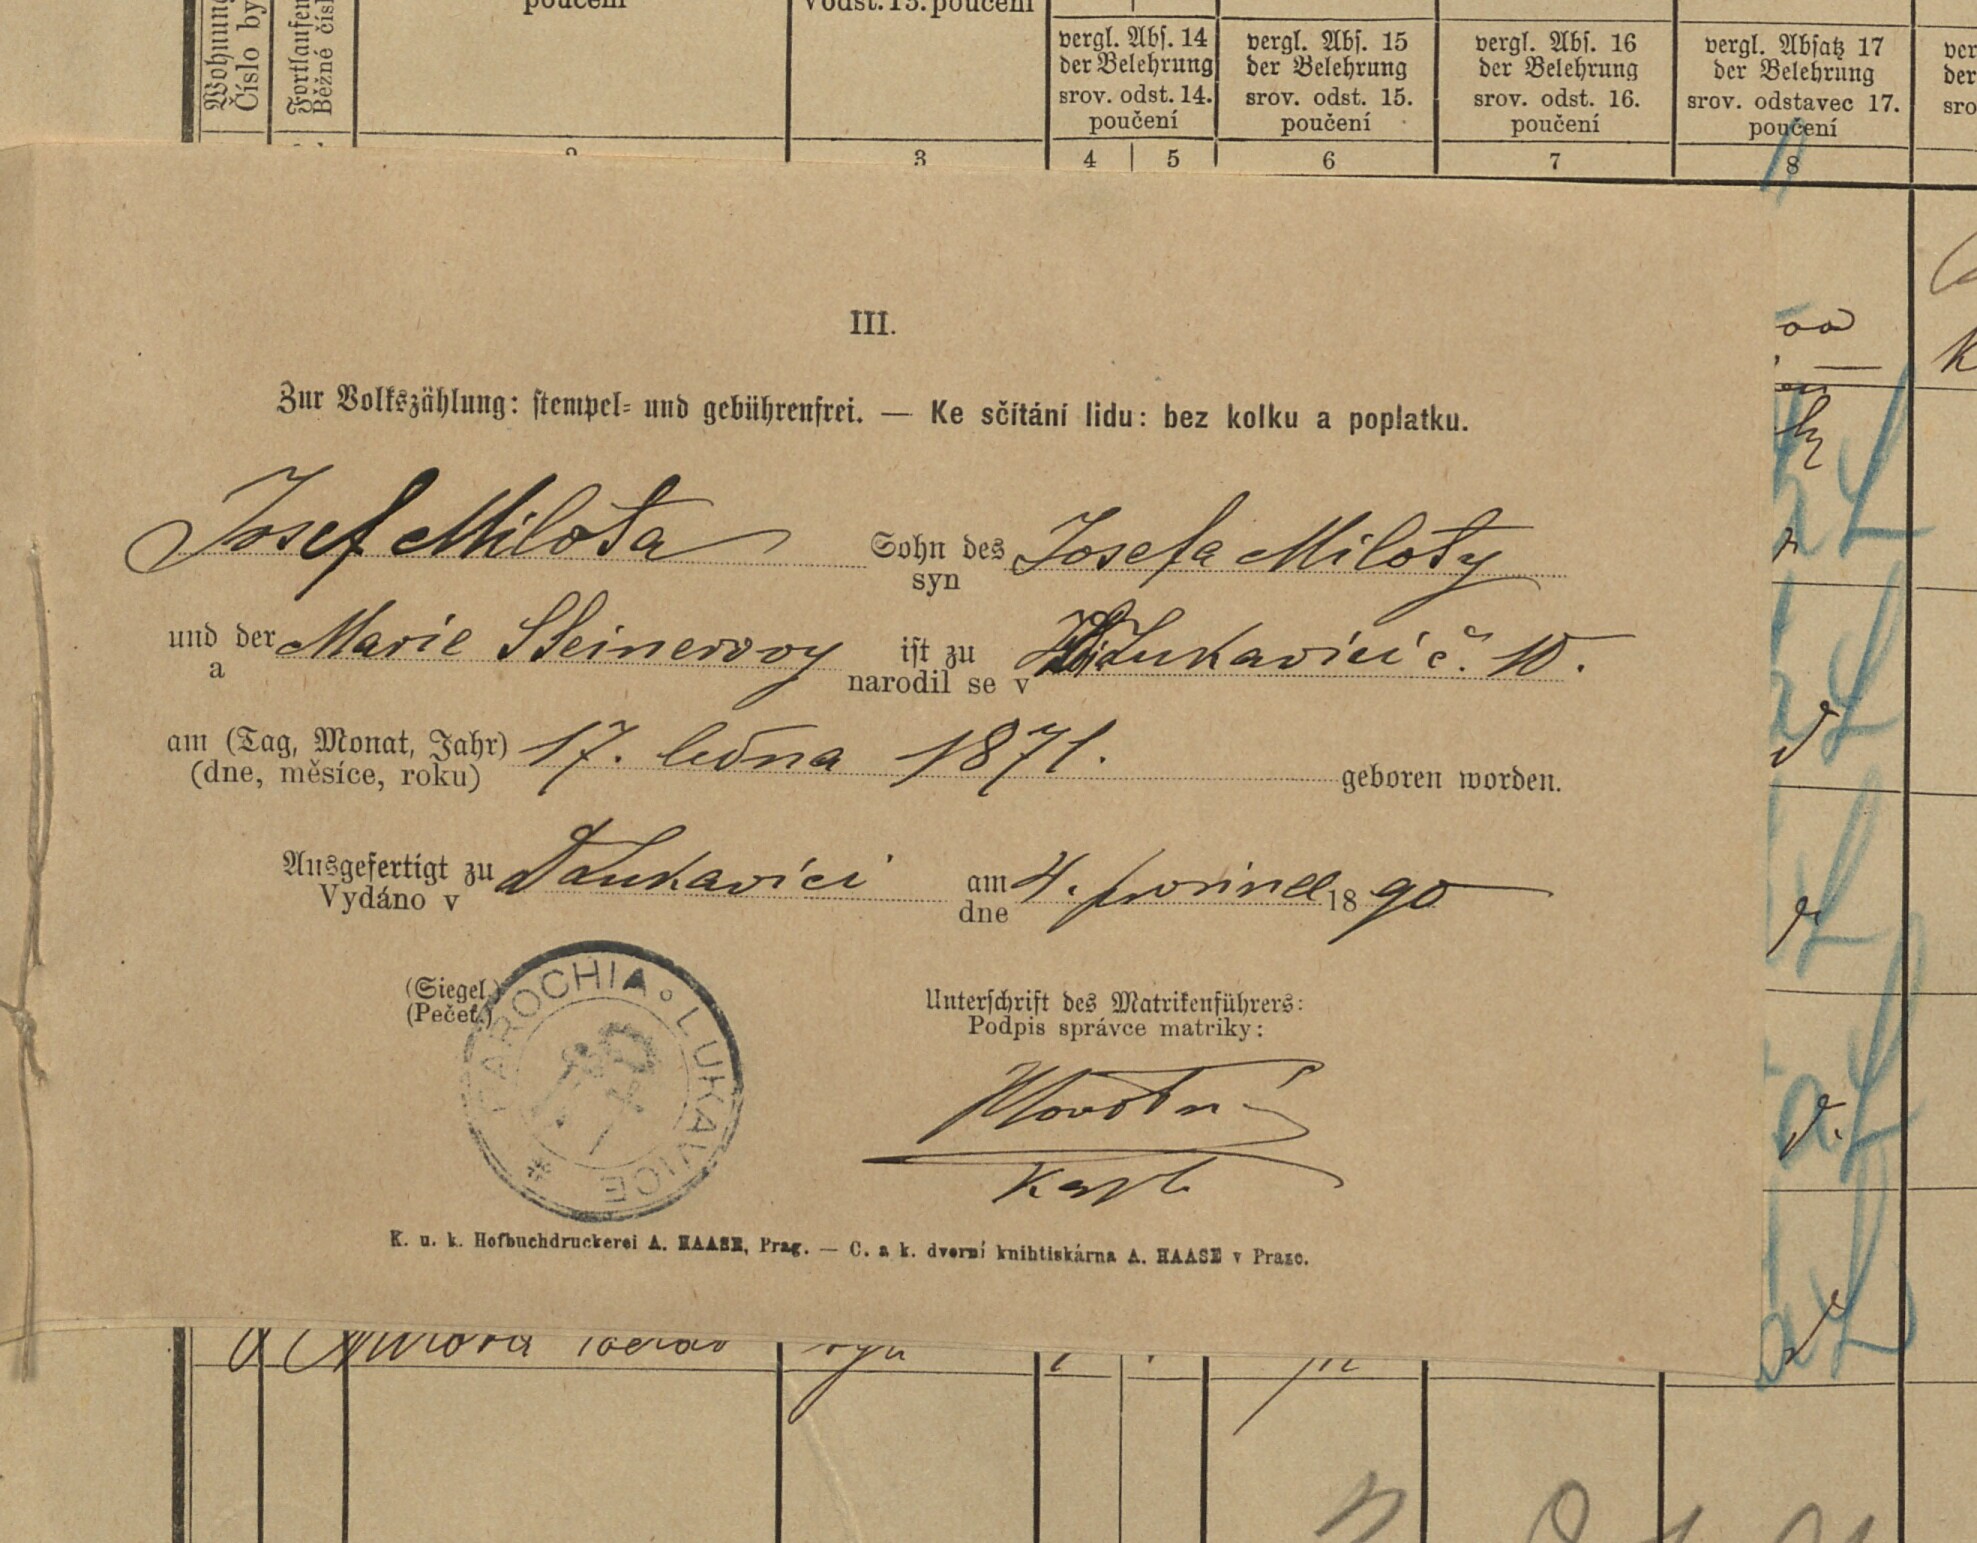 Wohnung
Číslo by
Fortlaufen
Běžné čísl
poučení
v odst. 15. poučení
vergl. Abs. 14
der Belehrung
srov. odst. 14.
poučení
vergl. Abs. 15
der Belehrung
srov. odst. 15.
poučení
vergl. Abs. 16
der Belehrung
srov. odst. 16.
poučení
vergl. Absatz 17
der Belehrung
srov. odstavec 17.
poučení
ver
der
sro
2 3 4 5 6 7 8
III.
Zur Volkszählung: stempel- und gebührenfrei. — Ke sčítání lidu: bez kolku a poplatku.
Josef Milota Sohn des Josefa Miloty
syn
und der Marie Steinerovy ist zu Lukavici č. 10.
a narodil se v
am (Tag, Monat, Jahr) 17. ledna 1871.
(dne, měsíce, roku) geboren worden.
Ausgefertigt zu Lukavici am 4. prosince 1890
Vydáno v dne
(Siegel.)
(Pečeť.)
PAROCHIA LUKAVICE
Unterschrift des Matrikenführers:
Podpis správce matriky:
Novotný
Kapl
K. u. k. Hofbuchdruckerei A. HAASE, Prag. — C. a k. dvorní knihtiskárna A. HAASE v Praze.